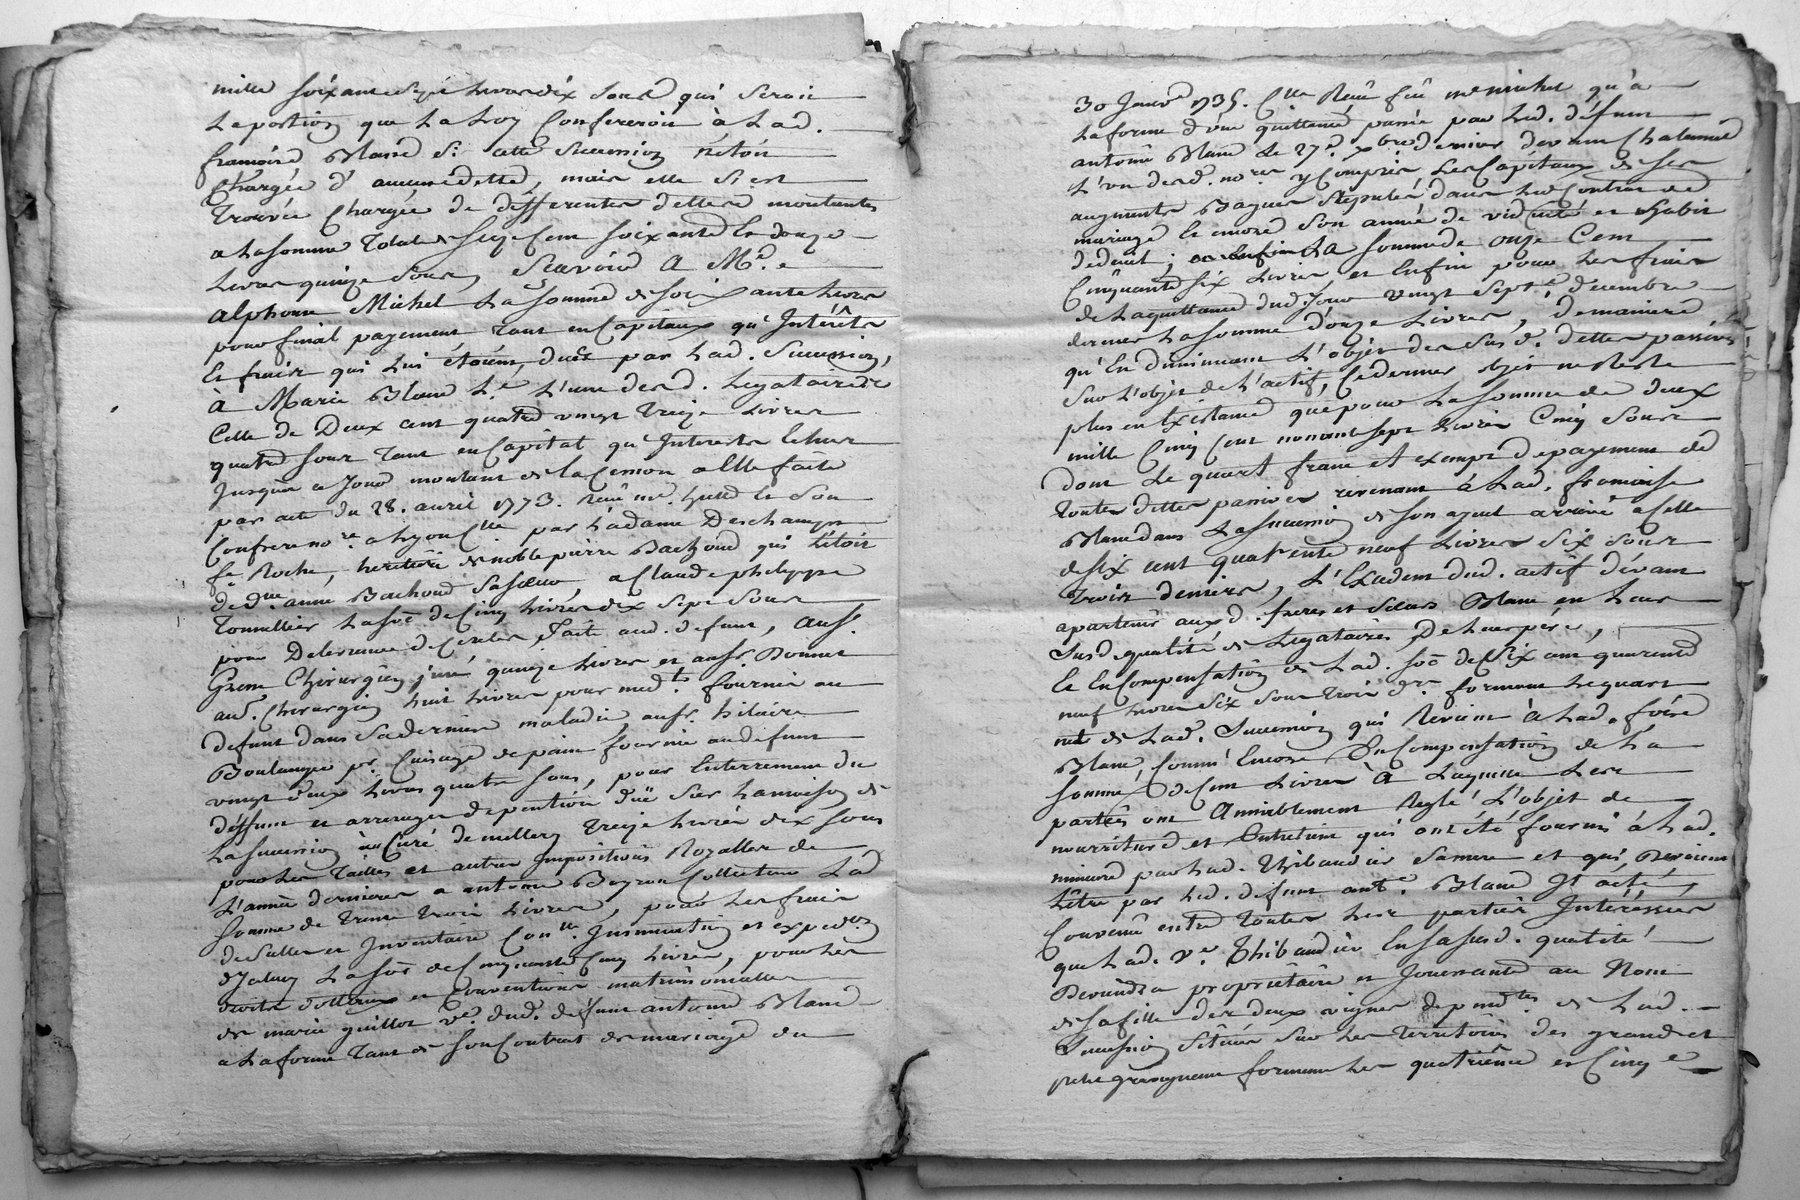 mille soixante Sept livres dix Sous qui Seroit
La portion que La Loy Confereroit à Lad.
francoise Blanc Si cette Succession n'étoit
Chargée d'aucune dette, mais elle S'est
trouvée Chargée de differentes dettes montantes
a La Somme totale de Seize Cent Soixante Et douze
Livres quinze Sous, Scavoir A Me.
alphonse Michel La Somme de Soixante Livres
pour final payement tant en Capitaux qu'Intérêts
Et fraix qui Lui étoient dues par Lad. Succession,
à Marie Blanc L'une desd. Legataires
Celle de Deux cent quatre vingt treize Livres
quatre Sous tant en Capital qu'Interests Echus
Jusques a Jour montant de la Cession a Elle faite
par acte du 28. avril 1773. Reçu me. Et Son
Confrere nore. a Lyon par Ladame Deschamps
fe. Roche, heritiere de noble pierre Bachoud qui L'étoit
de De. anne Bachoud Sa Soeur, a Claude philippe
Tonnellier La Sõe de Cinq Livres dix Sept Sous
pour Delivrance de Cercles faite aud. defunt, au Sr.
Chirurgien Juré quinze Livres et au Sr. Bonnet
aud. Chirurgien huit Livres pour medts. fournis au
defunt dans Sa derniere maladie, au Sr. hilaire
Boulanger pr. Cuisage de pain fournie au defunt
vingt deux Livres quatre Sous, pour Enterrement du
deffunt et arrerages de pention düe Sur La maison de
La Succession au Curé de millery treize Livres dix Sous
pour Les Tailles et autres Impositions Royalles de
L'année derniere a antoine Collecteur La
Somme de trente trois Livres, pour Les fraix
de Scellés et Inventaire Insinuation et expedon.
La Sõe de Cinquante Cinq Livres, pour Les
droits dottaux et Conventions matrimonialles
de marie guillot ve. dud. defunt antoine Blanc
a La forme tant de Son Contrat de mariage du
30 Janvr. 1735. Reçu feu me. michel qu'à
La forme d'une quittance passée par Led. défunt
antoine Blanc Le 27e. xbre dernier devant Chalumeau
L'un desd. nores. y Compris Les Capitaux de Ses
augments Bagues Stipulés dans Led Contrat de
mariage Et encore Son année de viduité et habit
de deuil; La Somme de onze Cent
Cinquante Six Livres et Enfin pour Les fraix
de La quittance dud. Jour vingt Septe. decembre
dernier La Somme d'onze Livres, de maniere
qu'En diminuant L'objet des Susd. dettes passives
Sur L'objet de L'actif, Ce dernier objet ne Reste
plus en Existance que pour La Somme de deux
mille Cinq Cent nonante Sept Livres Cinq Sous
dont Le quart franc et exempt de payement de
toutes dettes passives revenant à Lad. francoise
Blanc dans La Succession de Son ayeul arrive a Celle
de Six cent quarente neuf Livres Six Sous
trois deniers, L'Excedent dud. actif devant
apartenir auxd. freres et Soeurs Blanc en Leur
Susd. qualité de Legataires De Leur père,
Et En Compensation de Lad. Sõe de Six cent quarente
neuf Livres Six Sous trois drs. formant Le quart
net de Lad. Succession qui Revient à Lad. foise
Blanc, Comme Encore En Compensation de La
Somme de Cent Livres à Laquelle Les
parties ont Amiablement Reglé L'objet de
nourriture et Entretien qui ont été fournis à Lad.
mineure par Lad. Thibaudier Sa mere et qui Devoient
L'être par Led. defunt ante. Blanc Il a été
Convenu entre toutes Les parties Intéressées
que Lad. ve. Thibaudier En Sa Susd. qualité
Deviendra propriétaire et Jouissante au Nom
de Sa fille des deux vignes dependtes. de Lad.
Succession Situées Sur Les Territoires des grand et
petit formant Les quatriême et Cinqe